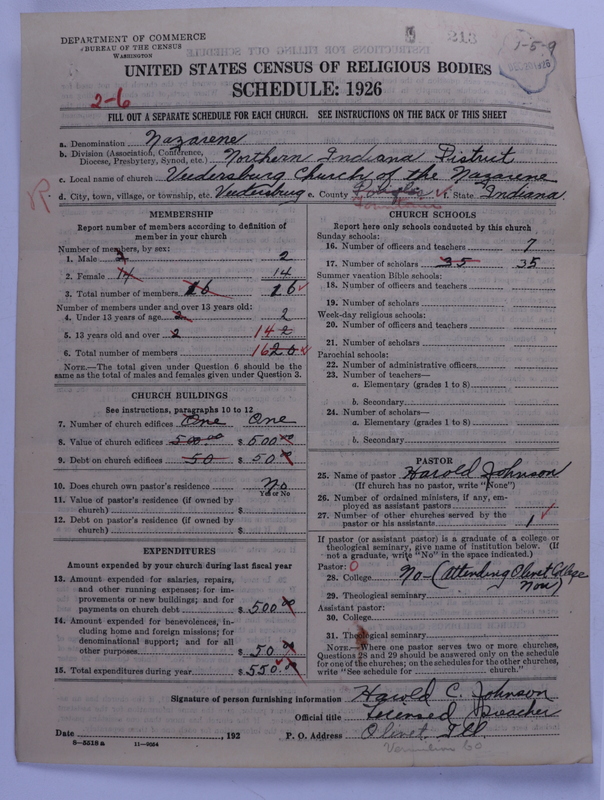 DEPARTMENT OF COMMERCE
BUREAU OF THE CENSUS
WASHINGTON
213
1-5-9
UNITED STATES CENSUS OF RELIGIOUS BODIES
SCHEDULE: 1926
2-6
FILL OUT A SEPARATE SCHEDULE FOR EACH CHURCH. SEE INSTRUCTIONS ON THE BACK OF THIS SHEET
a. Denomination Nazarene
b. Division (Association, Conference, Diocese, Presbytery, Synod, etc.) Northern Indiana District
c. Local name of church Veedersburg Church of the Nazarene
R.
d. City, town, village, or township, etc. Veedersburg e. County Fountain f. State Indiana.
MEMBERSHIP
Report number of members according to definition of
member in your church
Number of members, by sex:
1. Male 2 2
2. Female 14 14
3. Total number of members 16 16
Number of members under and over 13 years old:
4. Under 13 years of age 2 2
5. 13 years old and over 2 14 2
6. Total number of members 16 20
NOTE.—The total given under Question 6 should be
same as the total of males and females given under Question 3.
CHURCH BUILDINGS
See instructions, paragraphs 10 to 12
7. Number of church edifices One One
8. Value of church edifices 500.00 $ 500.00
9. Debt on church edifices 50 $ 50.00
10. Does church own pastor's residence No
Yes or No
11. Value of pastor's residence (if owned by
church) $
12. Debt on pastor's residence (if owned by
church) $
EXPENDITURES
Amount expended by your church during last fiscal year
13. Amount expended for salaries, repairs,
and other running expenses; for im-
provements or new buildings; and for
payments on church debt $ 500.00
14. Amount expended for benevolences, in-
cluding home and foreign missions; for
denominational support; and for all
other purposes $ 50.00
15. Total expenditures during year $ 550.00
CHURCH SCHOOLS
Report here only schools conducted by this church
Sunday schools:
16. Number of officers and teachers 7
17. Number of scholars 35 35
Summer vacation Bible schools:
18. Number of officers and teachers
19. Number of scholars
Week-day religious schools:
20. Number of officers and teachers
21. Number of scholars
Parochial schools:
22. Number of administrative officers
23. Number of teachers—
a. Elementary (grades 1 to 8)
b. Secondary
24. Number of scholars—
a. Elementary (grades 1 to 8)
b. Secondary
PASTOR
25. Name of pastor Harold Johnson
(If church has no pastor, write "None")
26. Number of ordained ministers, if any, em-
ployed as assistant pastors
27. Number of other churches served by the
pastor or his assistants 1
If pastor (or assistant pastor) is a graduate of a college or
theological seminary, give name of institution below. (If
not a graduate, write "No" in the space indicated.)
Pastor: 0
28. College No - (attending Olivet College
Now)
29. Theological seminary
Assistant pastor:
30. College
31. Theological seminary
NOTE.—Where one pastor serves two or more churches,
Questions 28 and 29 should be answered only on the schedule
for one of the churches; on the schedules for the other churches,
write "See schedule for church."
Signature of person furnishing information Harold C. Johnson
Official title Licensed Preacher
Date , 192 P. O. Address Olivet, Ill
8—5518a 11—9054
Vermilion Co